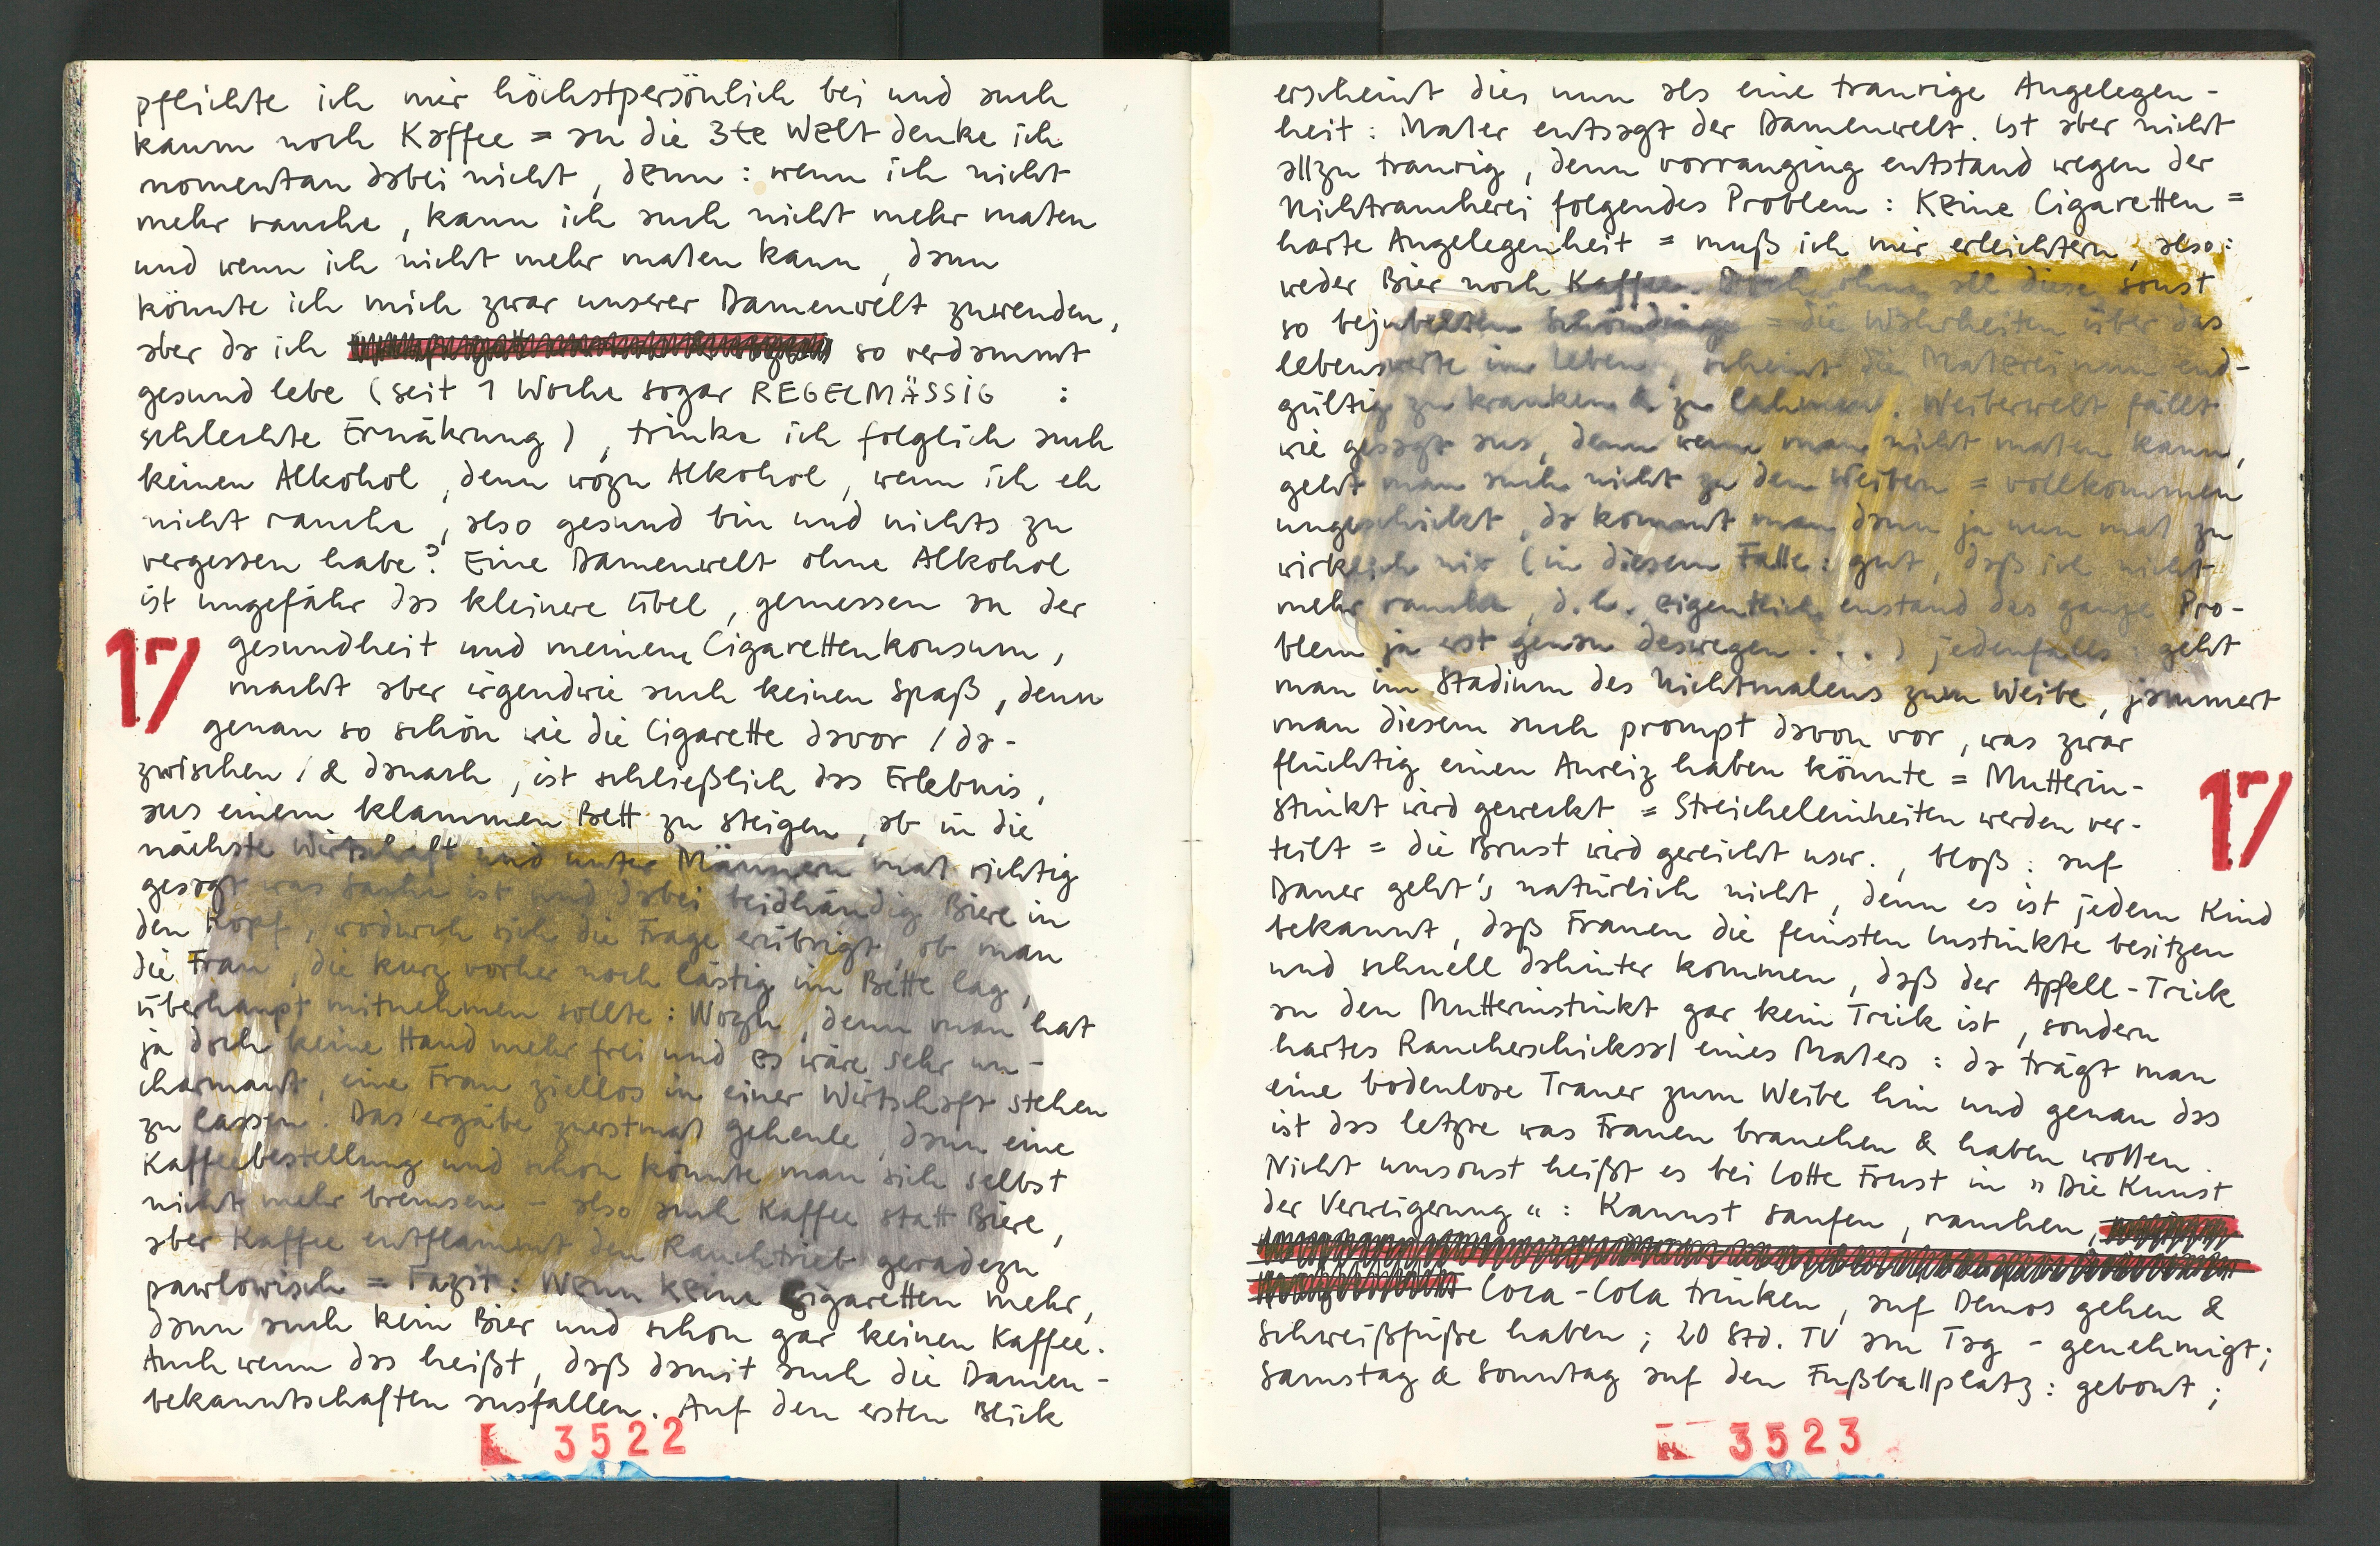 pflichte ich mir höchstpersönlich bei und auch
kaum noch Kaffee = an die 3te Welt denke ich
momentan dabei nicht, denn: wenn ich nicht
mehr rauche, kann ich auch nicht mehr malen
und wenn ich nicht mehr malen kann, dann
könnte ich mich zwar unserer Damenwelt zuwenden,
aber da ich so verdammt
gesund lebe (seit 1 Woche sogar REGELMÄSSIG :
schlechte Ernährung), trinke ich folglich auch
keinen Alkohol, denn wozu Alkohol, wenn ich eh
nicht rauche, also gesund bin und nichts zu
vergessen habe? Eine Damenwelt ohne Alkohol
ist ungefähr das kleinere übel, gemessen an der
17
gesundheit und meinem Cigarettenkonsum,
macht aber irgendwie auch keinen Spaß, denn
genau so schön wie die Cigarette davor / da-
zwischen / & danach, ist schließlich das Erlebnis,
aus einem klammen Bett zu steigen, ab in die
nächste Wirtschaft und unter Männern mal richtig
gesagt was Sache ist und dabei beidhändig Biere in
den Kopf, wodurch sich die Frage erübrigt, ob man
die Frau, die kurz vorher noch lästig im Bette lag,
überhaupt mitnehmen sollte: Wozu, denn man hat
ja doch keine Hand mehr frei und es wäre sehr un-
charmant, eine Frau ziellos in einer Wirtschaft stehen
zu lassen. Das ergäbe zuerstmal geheule, dann eine
Kaffeebestellung und schon könnte man sich selbst
nicht mehr bremsen - also auch Kaffee statt Biere,
aber Kaffee entflammt den Rauchtrieb geradezu
pawlowisch = Fazit: Wenn keine Cigaretten mehr,
dann auch kein Bier und schon gar keinen Kaffee.
Auch wenn das heißt, daß damit auch die Damen-
bekanntschaften ausfallen. Auf den ersten Blick
3522
erscheint dies nun als eine traurige Angelegen-
heit: Maler entsagt der Damenwelt. Ist aber nicht
allzu traurig, denn vorranging entstand wegen der
Nichtraucherei folgendes Problem: Keine Cigaretten =
harte Angelegenheit = muß ich mir erleichtern, also:
weder Bier noch Kaffee. Doch ohne all diese sonst
so bejubelten Schöndinge = die Wahrheiten über das
lebenswerte im Leben, scheint die Malerei nun end-
gültig zu kranken & zu lahmen. Weiberwelt fällt
wie gesagt aus, denn wenn man nicht malen kann,
geht man auch nicht zu den Weibern = vollkommen
ungeschickt, da kommt man dann ja nun mal zu
wirklich nix (in diesem Falle: gut, daß ich nicht
mehr rauche, d.h. eigentlich enstand das ganze Pro-
blem ja erst genau deswegen . . .) jedenfalls: geht
man im Stadium des Nichtmalens zum Weibe, jammert
man diesem auch prompt davon vor, was zwar
flüchtig einen Anreiz haben könnte = Mutterin-
stinkt wird geweckt = Streicheleinheiten werden ver-
17
teilt = die Brust wird gereicht usw., bloß: auf
Dauer geht's natürlich nicht, denn es ist jedem Kind
bekannt, daß Frauen die feinsten Instinkte besitzen
und schnell dahinter kommen, daß der Apfell-Trick
an den Mutterinstinkt gar kein Trick ist, sondern
hartes Raucherschicksal eines Malers: da trägt man
eine bodenlose Trauer zum Weibe hin und genau das
ist das letzte was Frauen brauchen & haben wollen.
Nicht umsonst heißt es bei Lotte Frust in "Die Kunst
der Verweigerung": Kannst saufen, rauchen,
Coca-Cola trinken, auf Demos gehen &
Schweißfüße haben; 20 Std. TV am Tag - genehmigt;
Samstag & Sonntag auf den Fußballplatz: gebont;
3523